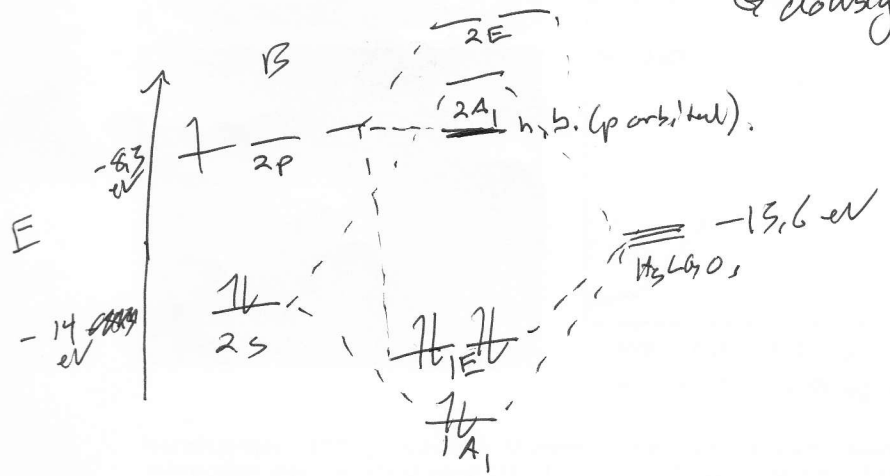 & closely
2E
B
2A₁
n.b. (p orbital).
-8.3
eV
2p
E
-13.6 eV
H₃LGO,
-14
eV
2s
1E
1A₁